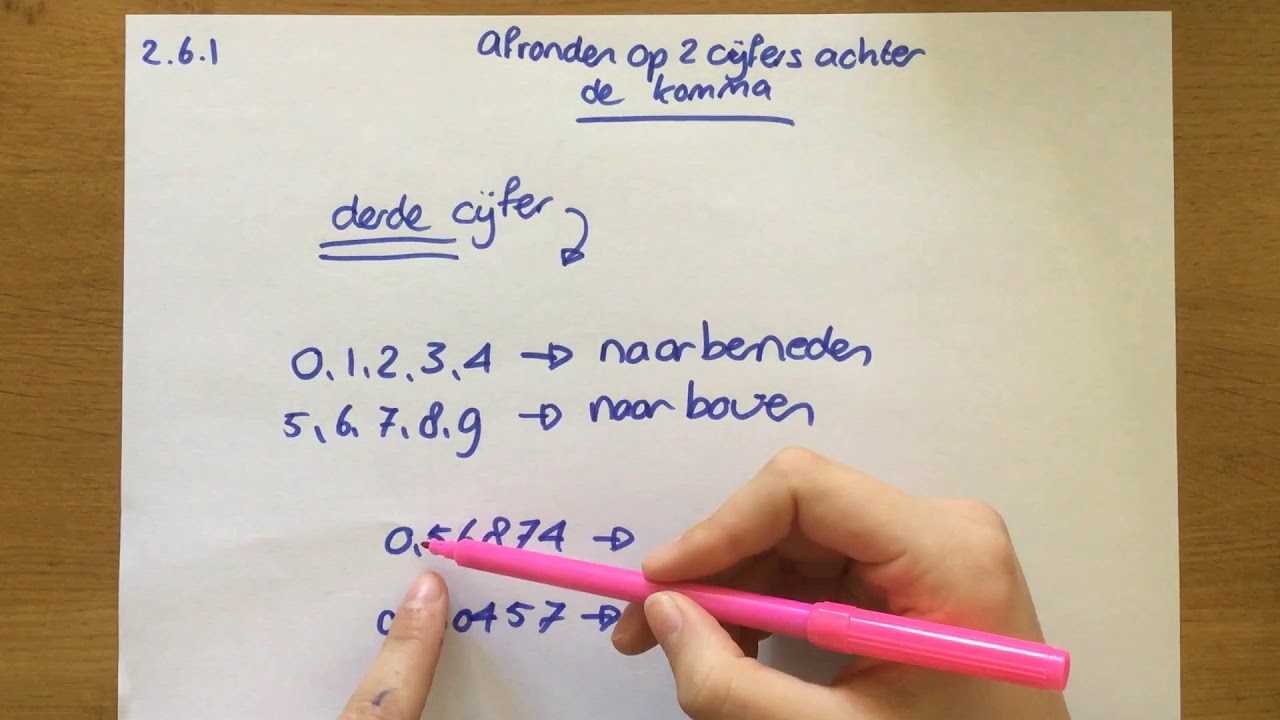 2.6.1
Afronden op 2 cijfers achter
de komma
derde cijfer
0,1,2,3,4 → naar beneden
5,6,7,8,9 → naar boven
0,56874 →
0457 →